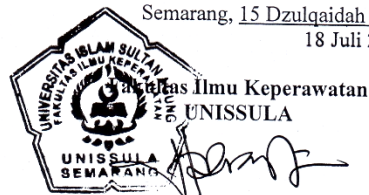 Semarang, 15 Dzulqaidah
18 Juli
Fakultas Ilmu Keperawatan
UNISSULA
UNIVERSITAS ISLAM SULTAN AGUNG
FAKULTAS ILMU KEPERAWATAN
UNISSULA
SEMARANG